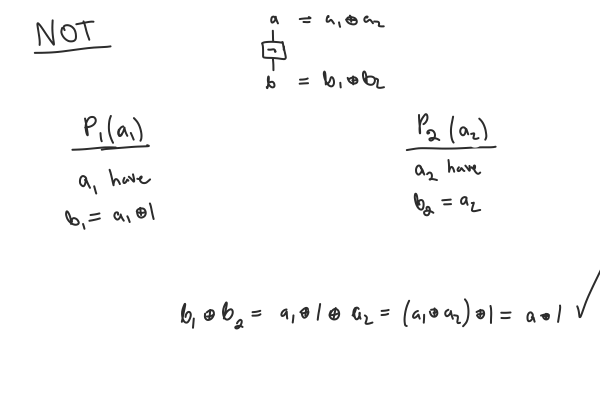 NOT
a = a₁⊕a₂
¬
b = b₁⊕b₂
P₁(a₁)
a₁ have
b₁ = a₁⊕1
P₂(a₂)
a₂ have
b₂ = a₂
b₁⊕b₂ = a₁⊕1⊕a₂ = (a₁⊕a₂)⊕1 = a⊕1 ✓